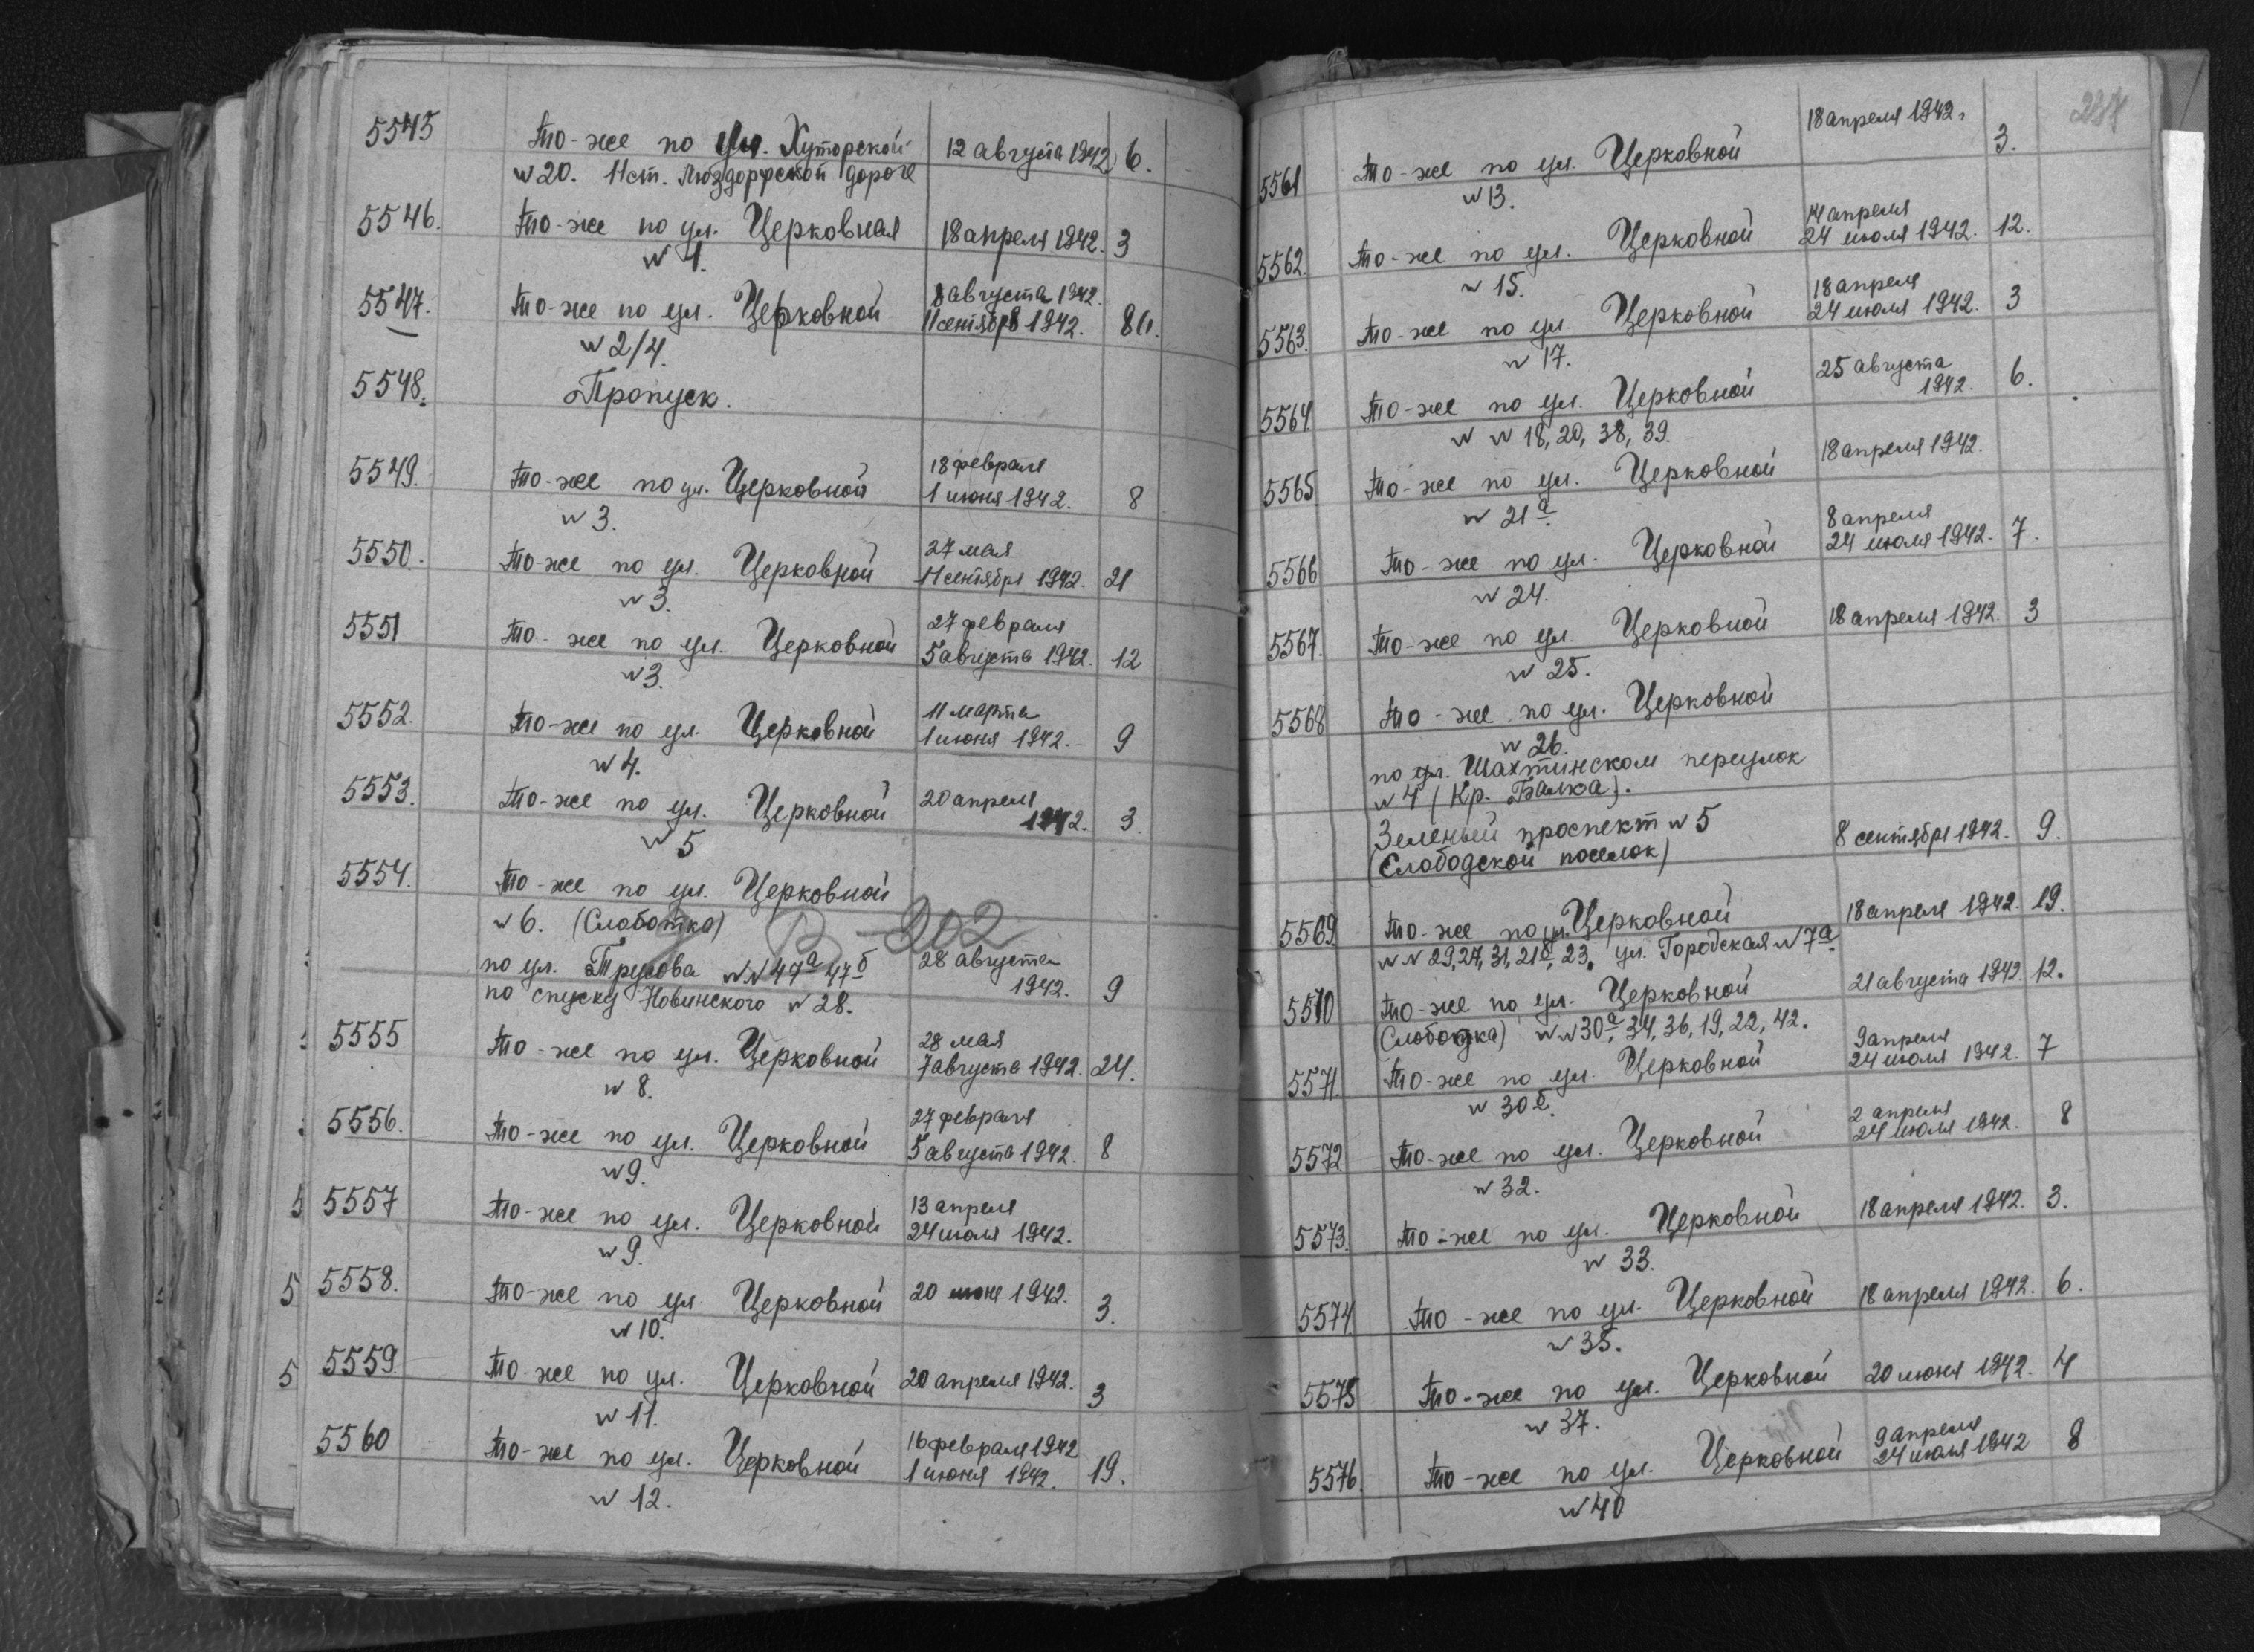 5545 То-же по ул. Хуторской 12 августа 1942 6.
№ 20. 11 ст. Люздорфской дороге
5546. То-же по ул. Церковная 18 апреля 1942. 3
№ 1.
5547. То-же по ул. Церковной 8 августа 1942.
11 сентября 1942.
№ 2/4.
5548. Пропуск.
5549. То-же по ул. Церковной 18 февраля
1 июня 1942. 8
№ 3.
5550. То-же по ул. Церковной 27 мая
11 сентября 1942. 21
№ 3.
5551 То-же по ул. Церковной 27 февраля
5 августа 1942. 12
№ 3.
5552. То-же по ул. Церковной 11 марта
1 июня 1942. 9
№ 4.
5553. То-же по ул. Церковной 20 апреля
1942. 3.
№ 5
5554. То-же по ул. Церковной
№ 6. (Слоботка)
202
по ул. Трусова №№ 47а 47б 28 августа
1942. 9
по спуску Новинского № 28.
5555 То-же по ул. Церковной 28 мая
7 августа 1942. 24.
№ 8.
5556. То-же по ул. Церковной 27 февраля
5 августа 1942. 8
№ 9.
5557 То-же по ул. Церковной 13 апреля
24 июля 1942.
№ 9.
5558. То-же по ул Церковной 20 июне 1942. 3.
№ 10.
5559. То-же по ул. Церковной 20 апреля 1942. 3
№ 11.
5560 То-же по ул. Церковной 16 февраля 1942
1 июня 1942. 19.
№ 12.
5561 То-же по ул. Церковной 18 апреля 1942. 3.
№ 13.
5562. То-же по ул. Церковной 14 апреля
24 июля 1942. 12.
№ 15.
5563. То-же по ул. Церковной 18 апреля
24 июля 1942. 3
№ 17.
5564 То-же по ул. Церковной 25 августа
1942. 6.
№ № 18, 20, 38, 39.
5565 То-же по ул. Церковной 18 апреля 1942.
№ 21а.
5566 То-же по ул. Церковной 8 апреля
24 июля 1942. 7.
№ 24.
5567. То-же по ул. Церковной 18 апреля 1942. 3
№ 25.
5568 То-же по ул. Церковной
№ 26.
по ул. Шахтинском переулок
№ 4 (Кр. Балка).
Зеленый проспект № 5
(Слободской поселок) 8 сентября 1942. 9.
5569 То-же по ул. Церковной 18 апреля 1942. 19.
№№ 29, 27, 31, 21б, 23, ул. Городская № 7а.
5570 То-же по ул. Церковной 21 августа 1942. 12.
(Слободка) №№ 30а, 34, 36, 19, 22, 42.
5571. То-же по ул. Церковной 9 апреля
24 июля 1942. 7
№ 30б.
5572 То-же по ул. Церковной 2 апреля
24 июля 1942. 8
№ 32.
5573. То-же по ул. Церковной 18 апреля 1942. 3.
№ 33.
5574. То-же по ул. Церковной 18 апреля 1942. 6.
№ 35.
5575 То-же по ул. Церковной 20 июня 1942. 4
№ 37.
5576. То-же по ул. Церковной 9 апреля
24 июля 1942 8
№ 40